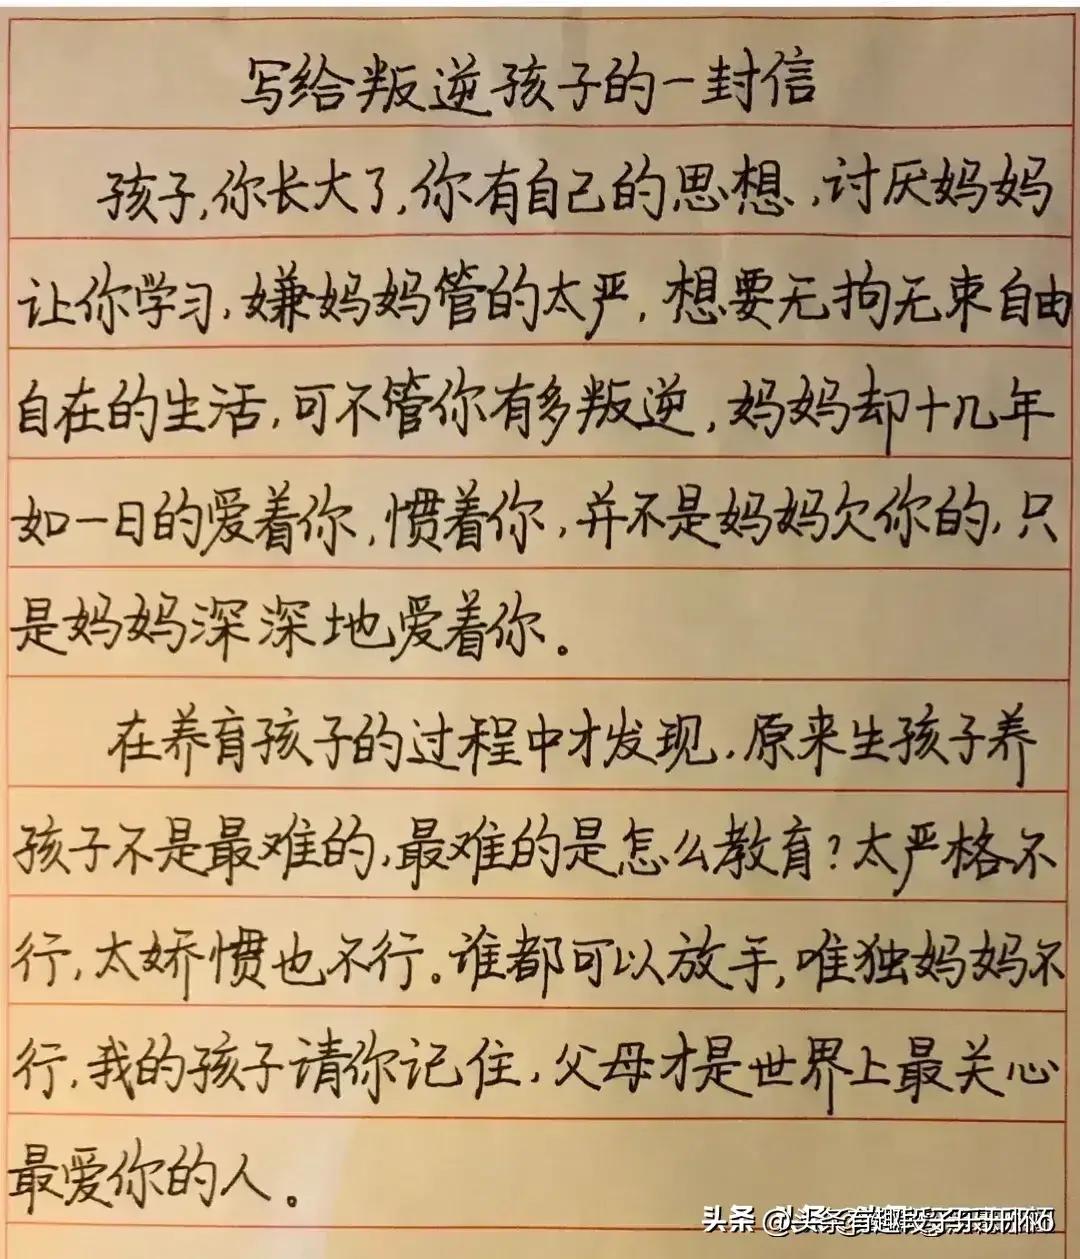 写给叛逆孩子的一封信
孩子,你长大了,你有自己的思想,讨厌妈妈
让你学习,嫌妈妈管的太严,想要无拘无束自由
自在的生活,可不管你有多叛逆,妈妈却十几年
如一日的爱着你,惯着你,并不是妈妈欠你的,只
是妈妈深深地爱着你。
在养育孩子的过程中才发现,原来生孩子养
孩子不是最难的,最难的是怎么教育?太严格不
行,太娇惯也不行。谁都可以放手,唯独妈妈不
行,我的孩子请你记住,父母才是世界上最关心
最爱你的人。
头条 @头条有趣段子